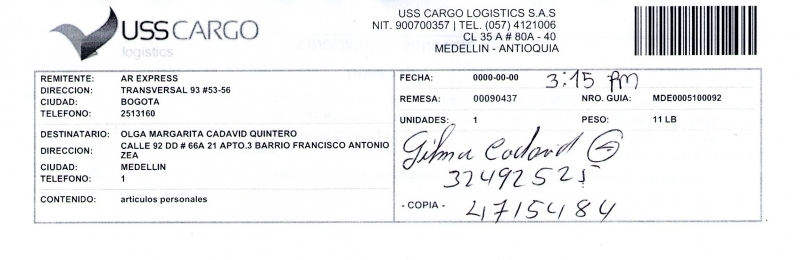 USSCARGO
logistics
USS CARGO LOGISTICS S.A.S
NIT. 900700357 | TEL. (057) 4121006
CL 35 A # 80A - 40
MEDELLIN - ANTIOQUIA
REMITENTE: AR EXPRESS
DIRECCION: TRANSVERSAL 93 #53-56
CIUDAD: BOGOTA
TELEFONO: 2513160
DESTINATARIO: OLGA MARGARITA CADAVID QUINTERO
DIRECCION: CALLE 92 DD # 66A 21 APTO.3 BARRIO FRANCISCO ANTONIO
ZEA
CIUDAD: MEDELLIN
TELEFONO: 1
CONTENIDO: articulos personales
FECHA: 0000-00-00 3:15 pm
REMESA: 00090437 NRO. GUIA: MDE0005100092
UNIDADES: 1 PESO: 11 LB
Gilma Cadavid
32492525
- COPIA - 4715484